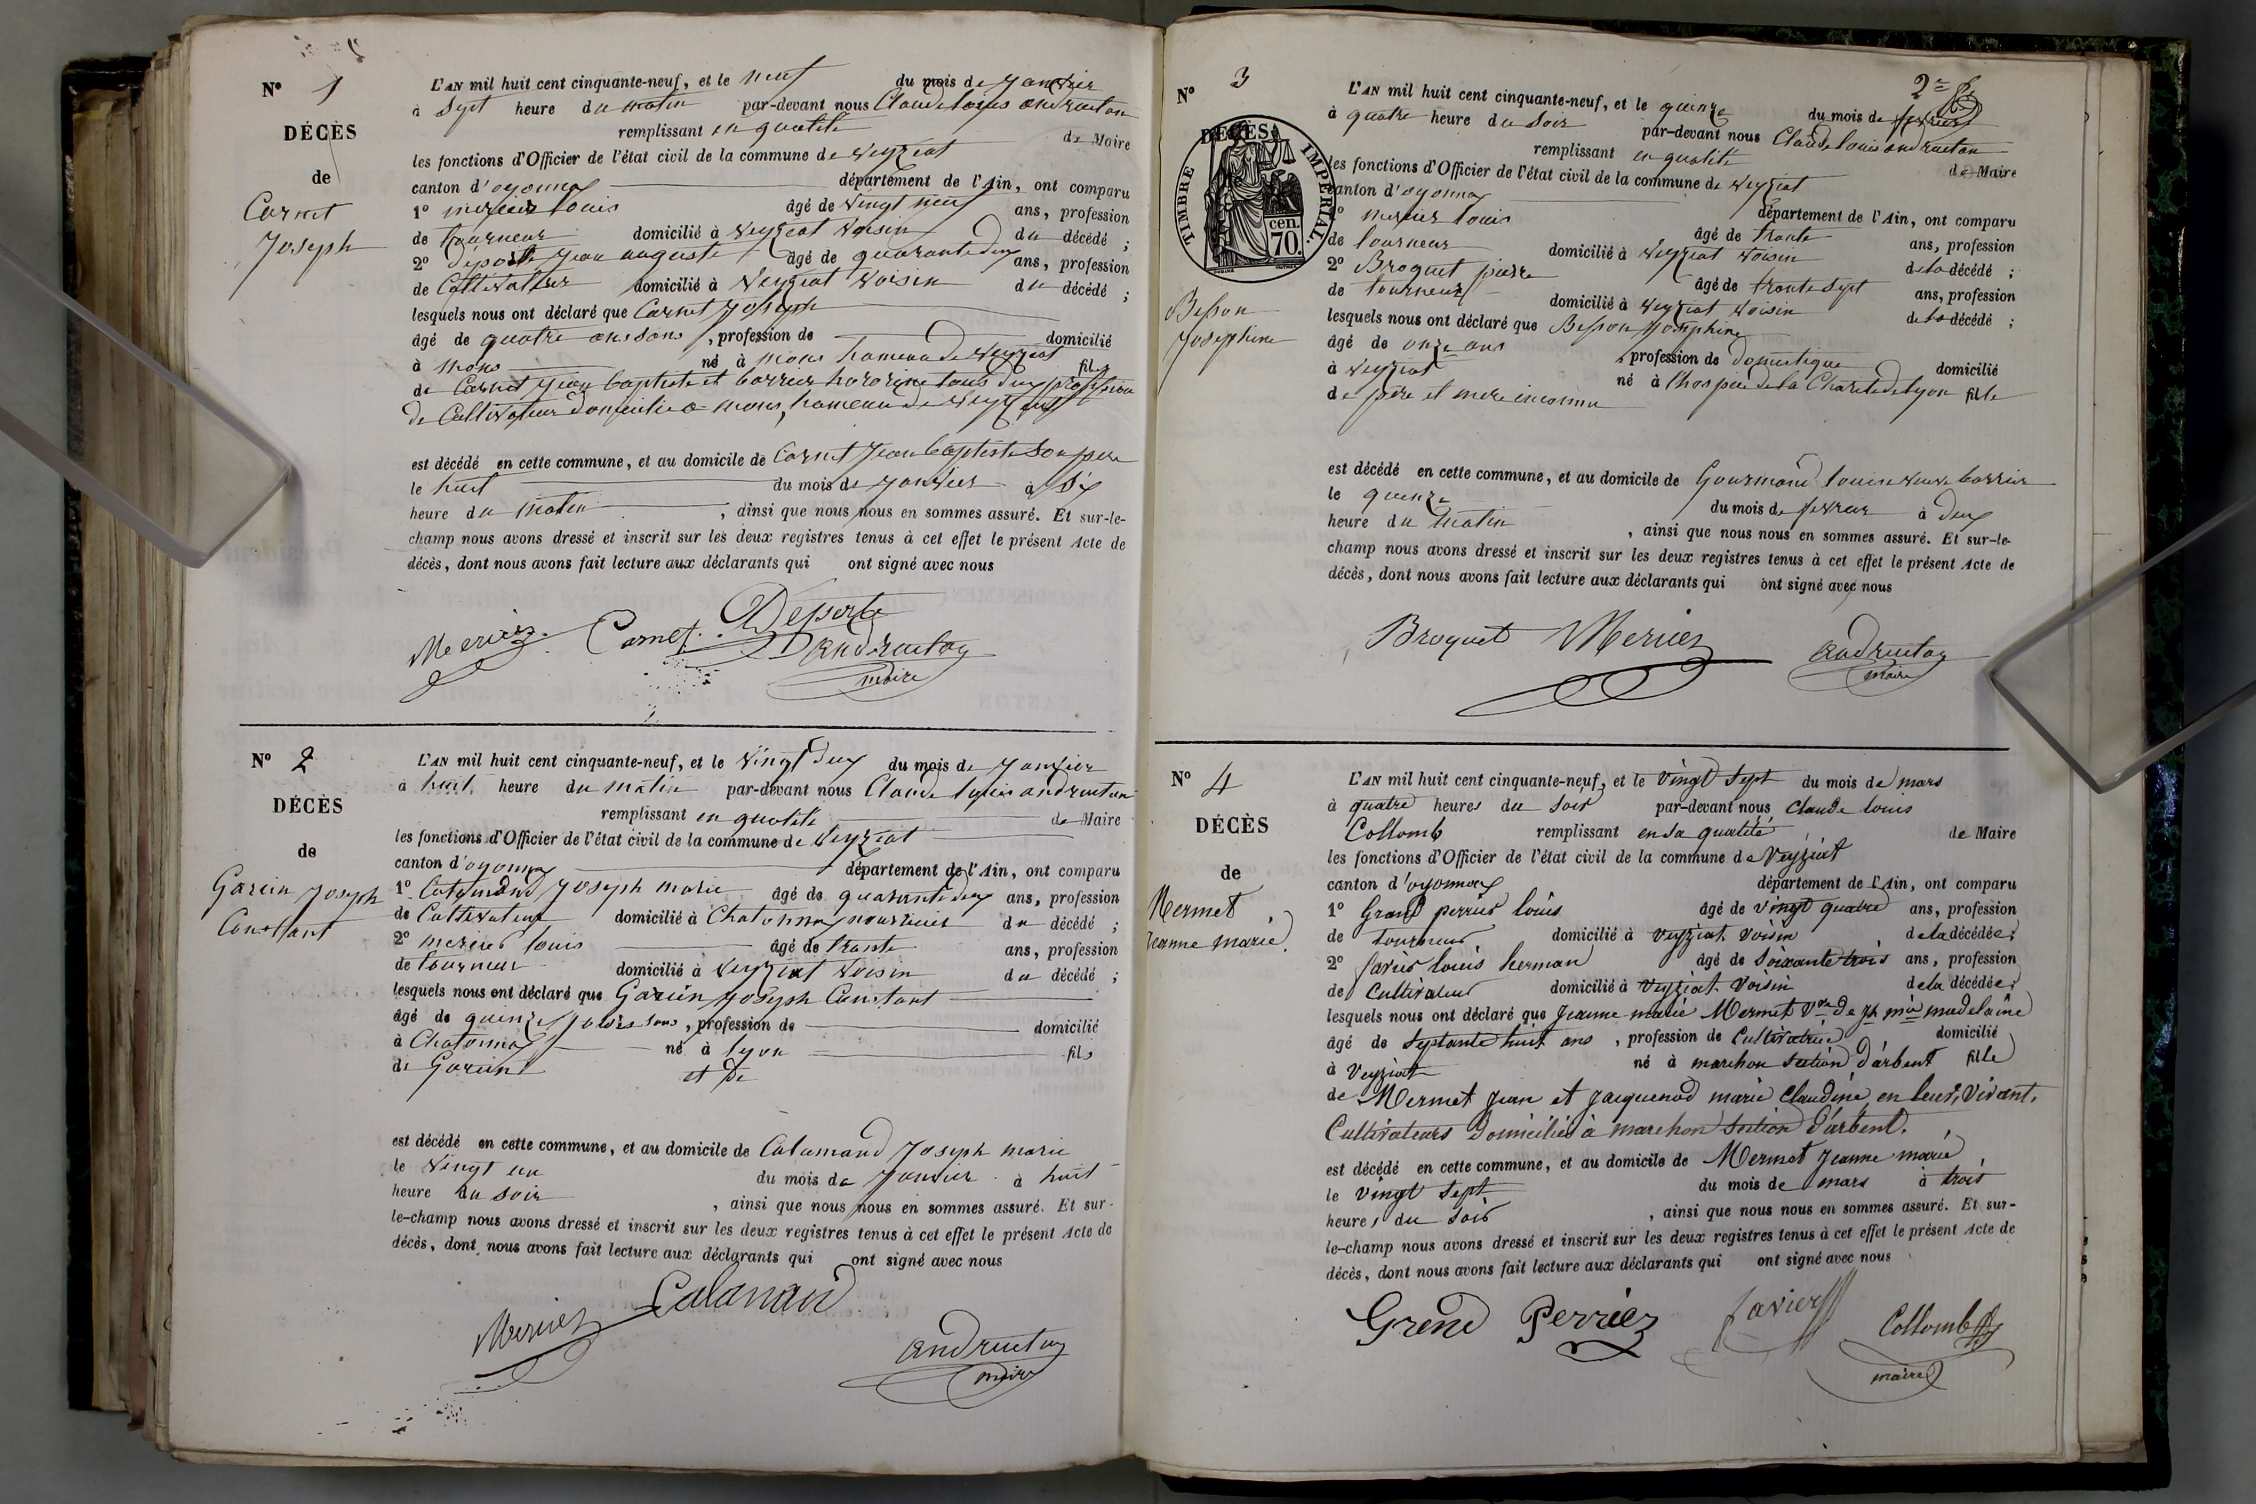 N° 1
DÉCÈS
de
Carnet
Joseph
L'AN mil huit cent cinquante-neuf, et le neuf du mois de janvier
à Sept heure du matin par-devant nous Claude louis andruetan
remplissant en qualité de Maire
les fonctions d'Officier de l'état civil de la commune de veyziat
canton d'oyonnax département de l'Ain, ont comparu
1° mercier louis âgé de vingt neuf ans, profession
de tourneur domicilié à veyziat voisin du décédé ;
2° déporte jean auguste âgé de quarante deux ans, profession
de Cultivateur domicilié à Veyziat voisin du décédé ;
lesquels nous ont déclaré que Carnet joseph
âgé de quatre ans sans , profession de domicilié
à mons né à mons hameau de veyziat fils
de Carnet jean baptiste et barrier tous deux profession
de Cultivateur domicilié a mons, hameau de veyziat
est décédé en cette commune, et au domicile de Carnet jean baptiste son père
le huit du mois de janvier à Six
heure du matin , ainsi que nous nous en sommes assuré. Et sur-le-
champ nous avons dressé et inscrit sur les deux registres tenus à cet effet le présent Acte de
décès, dont nous avons fait lecture aux déclarants qui ont signé avec nous
Mercier Carnet Deporte
andruetan
maire
N° 2
DÉCÈS
de
Garin Joseph
Constant
L'AN mil huit cent cinquante-neuf, et le vingt deux du mois de janvier
à huit heure du matin par-devant nous Claude louis andruetan
remplissant en qualité de Maire
les fonctions d'Officier de l'état civil de la commune de Veyziat
canton d'oyonnax département de l'Ain, ont comparu
1° Calamand joseph marie âgé de quarante deux ans, profession
de Cultivateur domicilié à Chatonnax nourricier du décédé ;
2° mercier louis âgé de trante ans, profession
de tourneur domicilié à veyziat voisin du décédé ;
lesquels nous ont déclaré que Garin joseph Constant
âgé de quinze jours sans , profession de domicilié
à Chatonnax né à lyon fils
de Garin et de
est décédé en cette commune, et au domicile de Calamand Joseph marie
le vingt un du mois de janvier à huit
heure du soir , ainsi que nous nous en sommes assuré. Et sur-
le-champ nous avons dressé et inscrit sur les deux registres tenus à cet effet le présent Acte de
décès, dont nous avons fait lecture aux déclarants qui ont signé avec nous
Mercier Calamand
andruetan
maire
2me
N° 3
DÉCÈS
TIMBRE IMPÉRIAL.
cen.
70.
Besson
Josephine
L'AN mil huit cent cinquante-neuf, et le quinze du mois de fevrier
à quatre heure du soir par-devant nous Claude louis andruetan
remplissant en qualité de Maire
les fonctions d'Officier de l'état civil de la commune de veyziat
canton d'oyonnax département de l'Ain, ont comparu
1° mercier louis âgé de trante ans, profession
de tourneur domicilié à veyziat voisin de la décédé ;
2° Broquet pierre âgé de trante sept ans, profession
de tourneur domicilié à veyziat voisin de la décédé ;
lesquels nous ont déclaré que Besson josephine
âgé de onze ans , profession de domestique domicilié
à veyziat né à l'hospice de la Charité de lyon fille
de père et mere inconnu
est décédé en cette commune, et au domicile de Gourmand veuve barrier
le quinze du mois de fevrier à deux
heure du matin , ainsi que nous nous en sommes assuré. Et sur-le-
champ nous avons dressé et inscrit sur les deux registres tenus à cet effet le présent Acte de
décès, dont nous avons fait lecture aux déclarants qui ont signé avec nous
Broquet Mercier andruetan
maire
N° 4
DÉCÈS
de
Mermet
Jeanne marie.
L'AN mil huit cent cinquante-neuf, et le vingt sept du mois de mars
à quatre heures du soir par-devant nous Claude louis
Collomb remplissant en sa qualité de Maire
les fonctions d'Officier de l'état civil de la commune de Veyziat
canton d'oyonnax département de l'Ain, ont comparu
1° Grand perrier louis âgé de vingt quatre ans, profession
de tourneur domicilié à veyziat voisin de la décédée ;
2° favier louis herman âgé de soixante trois ans, profession
de Cultivateur domicilié à veyziat voisin de la décédée ;
lesquels nous ont déclaré que jeanne marie Mermet Vve de jh mie madelaine
âgé de septante huit ans , profession de Cultivatrice domicilié
à Veyziat né à marchon section d'arbent fille
de Mermet jean et jacquenod marie claudine en leurs vivant,
Cultivateurs domiciliés à marchon section d'arbent.
est décédé en cette commune, et au domicile de Mermet jeanne marie
le vingt sept du mois de mars à trois
heure, du soir , ainsi que nous nous en sommes assuré. Et sur-
le-champ nous avons dressé et inscrit sur les deux registres tenus à cet effet le présent Acte de
décès, dont nous avons fait lecture aux déclarants qui ont signé avec nous
Grend Perrier favier Collomb
maire